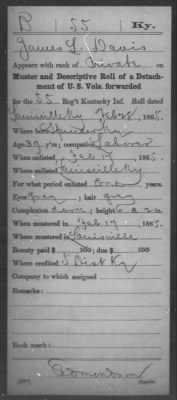 B 55 Ky.
James L. Davis
Appears with rank of Private on
Muster and Descriptive Roll of a Detach-
ment of U. S. Vols. forwarded
for the 55 Reg't Kentucky Inf. Roll dated
Louisville Ky Feb 28, 1865.
Where born Ky
Age 39 y'rs; occupation Laborer
When enlisted Feb 17, 1865.
Where enlisted Louisville Ky
For what period enlisted One years.
Eyes gray; hair gray
Complexion dark; height 6 ft. 2 in.
When mustered in Feb 17, 1865.
Where mustered in Louisville
Bounty paid $ 100; due $ 100
Where credited 5 Dist Ky
Company to which assigned
Remarks:
Book mark:
Edmindson
Copyist.